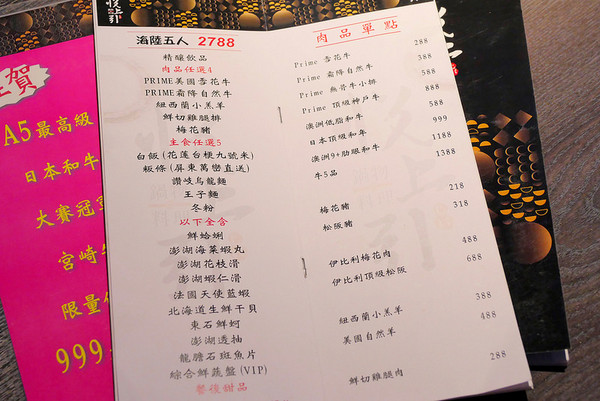 海陸五人 2788
精釀飲品
肉品任選4
PRIME美國雪花牛
PRIME霜降自然牛
紐西蘭小羔羊
鮮切雞腿排
梅花豬
主食任選5
白飯(花蓮台梗九號米)
粄條(屏東萬巒直送)
讚岐烏龍麵
王子麵
冬粉
以下全含
鮮蛤蜊
澎湖海菜蝦丸
澎湖花枝滑
澎湖蝦仁滑
法國天使藍蝦
北海道生鮮干貝
東石鮮蚵
澎湖透抽
龍膽石斑魚片
綜合鮮蔬盤(VIP)
餐後甜品
肉品單點
Prime 雪花牛 288
Prime 霜降自然牛 388
Prime 無骨牛小排 588
Prime 頂級神戶牛 888
澳洲低脂和牛 588
日本頂級和牛 999
澳洲9+肋眼和牛 1188
牛5品 1388
梅花豬 218
松阪豬 318
伊比利梅花肉 488
伊比利頂級松阪 688
紐西蘭小羔羊 388
美國自然羊 488
鮮切雞腿肉 288
賀
A5最高級
日本和牛
大賽冠
宮崎
限量
999